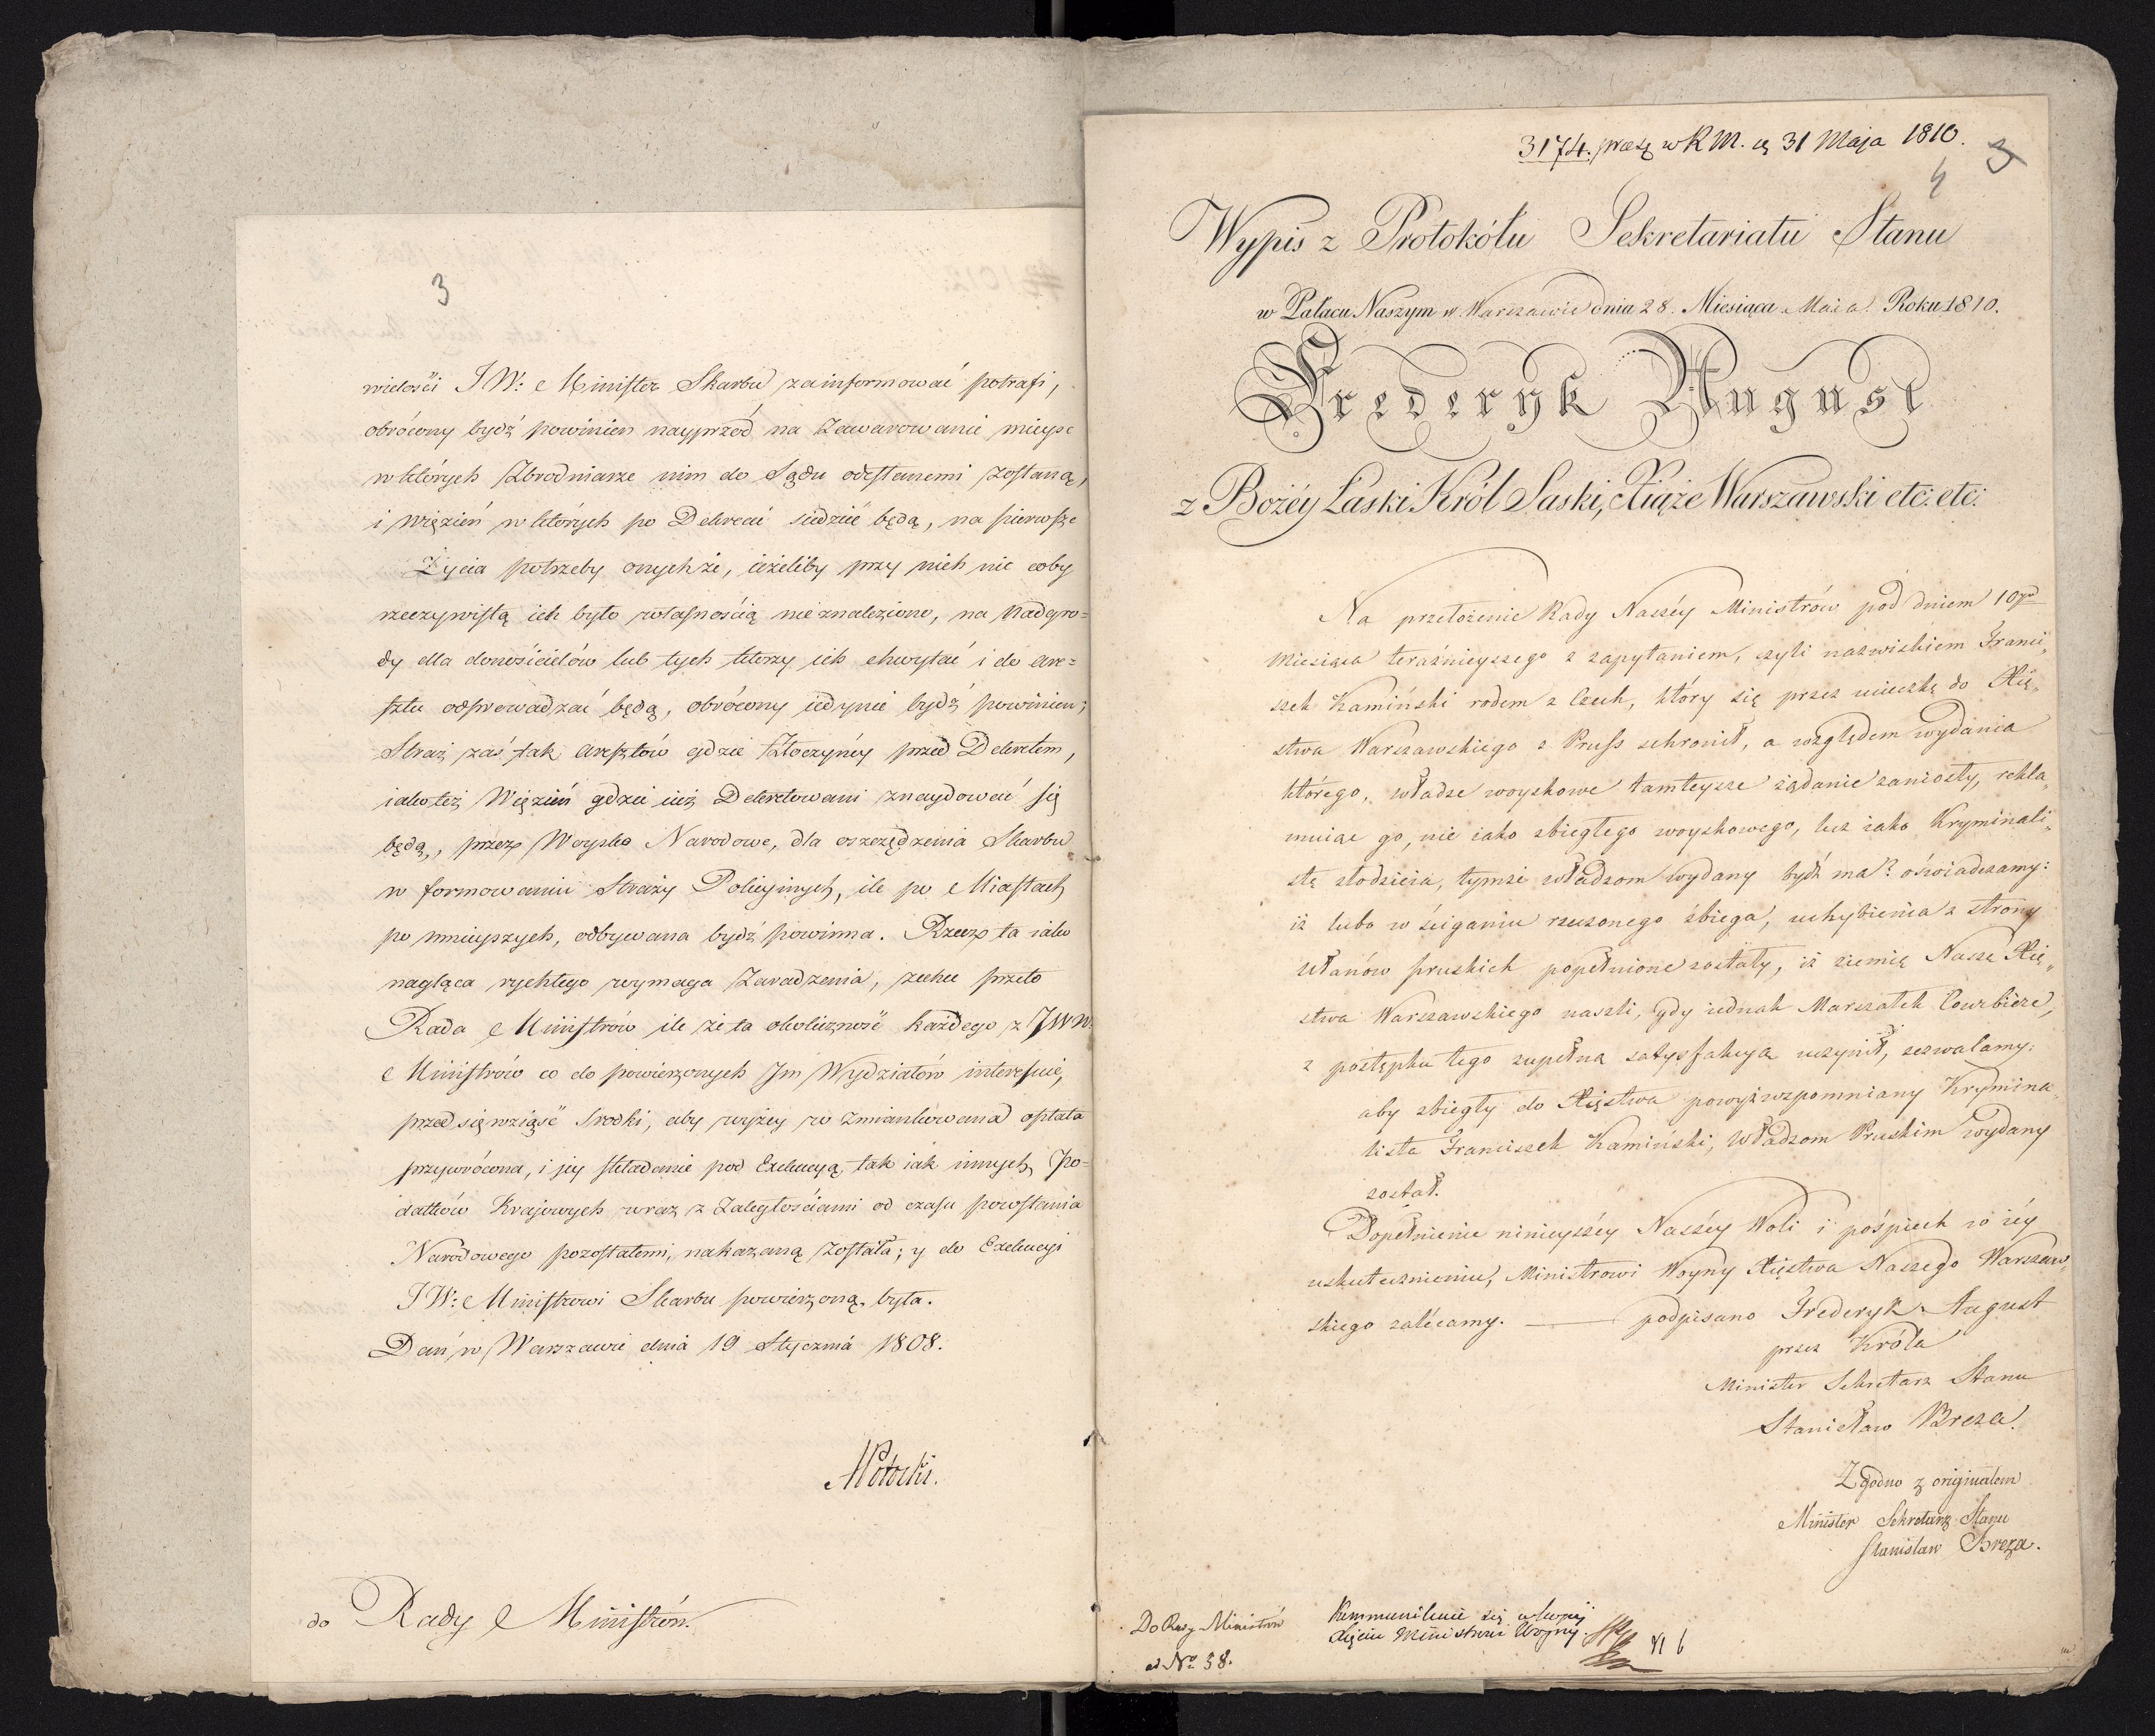 3
wielości JW: Minister Skarbu zainformować potrafi,
obrócony bydź powinien nayprzód na Zawarowanie mieysc
w których Zbrodniarze nim do Sądu odesłanemi zostaną,
i więzień w których po Dekrecie siedzieć będą, na pierwsze
Życia potrzeby onychże, ieżeliby przy nich nic coby
rzeczywistą ich było własnością nie znaleziono, na Nadgro=
dy dla donosicielów lub tych którzy ich chwytać i do are=
sztu odprowadzać będą, obrócony iedynie bydź powinien;
Straż zaś tak aresztów gdzie Złoczyńcy przed Dekretem,
iako też Więzień gdzie iuż Dekretowani znaydować się
będą, przez Woysko Narodowe, dla oszczędzenia Skarbu
w formowaniu Straży Policyinych, ile po Miastach
po mnieyszych, odbywana bydź powinna. Rzecz ta iako
nagląca rychłego wymaga Zaradzenia, zechce przeto
Rada Ministrów ile że ta okoliczność każdego z JWW.
Ministrów co do powierzonych Im Wydziałów interesuie,
przedsięwziąść Srodki, aby wyżey w zmiankowana opłata
przywrócona, i jey składanie pod Exekucyą, tak iak innych Po=
datków Krajowych wraz z Zaległościami od czasu powstania
Narodowego pozostałemi, nakazaną została; y do Exekucyi
JW: Ministrowi Skarbu powierzoną była.
Dań w Warszawie dnia 19 Stycznia 1808.
Potocki.
do Rady Ministrów.
3174. w R M. 31 Maja 1810.
4 3
Wypis z Protokółu Sekretariatu Stanu
w Pałacu Naszym w Warszawie dnia 28. Miesiąca Maia Roku 1810.
Frederyk August
z Bożéy Łaski Król Saski, Xiąże Warszawski etc: etc:
Na przełożenie Rady Naszéy Ministrów pod dniem 10go
miesiąca teraźnieyszego z zapytaniem, czyli nazwiskiem Franci„
szek Kamiński rodem z Czech, który się przez ucieczkę do Xię„
stwa Warszawskiego z Pruss schronił, a względem wydania
którego, władze woyskowe tamteysze żądanie zaniosły, rekla„
muiąc go, nie iako zbiegłego woyskowego, lecz iako Kryminali„
stę złodzieia, tymże władzom wydany bydź ma? oświadczamy:
iż lubo w ściganiu rzeczonego zbiega, uchybienia z strony
ułanów pruskich popełnione zostały, iż ziemię Nasze Xię„
stwa Warszawskiego naszli, gdy iednak Marszałek Courbiere,
z postępku tego zupełną satysfakcyą uczynił, zezwalamy:
aby zbiegły do Xięstwa powyż wzpomniany Krymina„
lista Franciszek Kamiński, Władzom Pruskim wydany
został.
Dopełnienie ninieyszéy Naszéy Woli i pośpiech w iéy
uskutecznieniu, Ministrowi Woyny Xięstwa Naszego Warszaw„
skiego zalécamy. —— podpisano Frederyk August
przez Króla
Minister Sekretarz Stanu
Stanisław Breza.
Zgodno z originałem
Minister Sekretarz Stanu
Stanisław Breza.
Do Rady Ministrów
ad No 38.
Kommunikuie się w kopij
Xięciu Ministrowi Woyny.